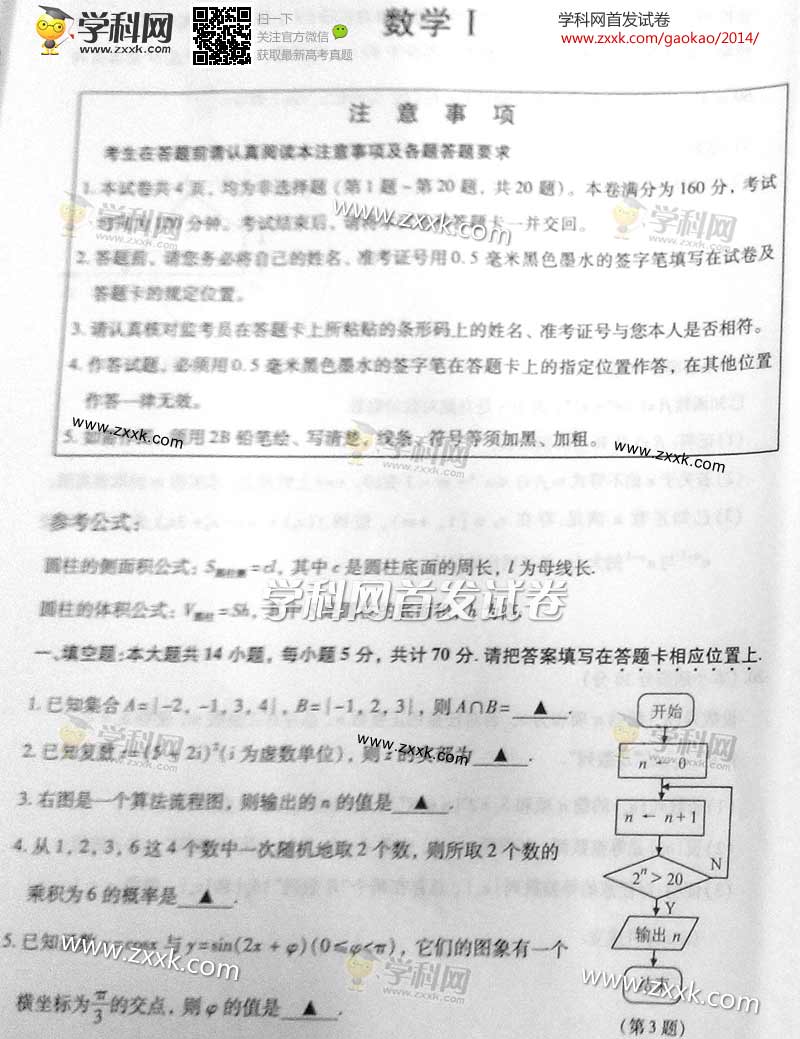 学科网
www.zxxk.com
扫一下
关注官方微信
获取最新高考真题
数学 I
学科网首发试卷
www.zxxk.com/gaokao/2014/
注 意 事 项
考生在答题前请认真阅读本注意事项及各题答题要求
1. 本试卷共 4 页, 均为非选择题 (第 1 题 ~ 第 20 题, 共 20 题)。本卷满分为 160 分, 考试
分钟。考试结束后, 请将 答题卡一并交回。
2. 答题前, 请您务必将自己的姓名、准考证号用 0.5 毫米黑色墨水的签字笔填写在试卷及
答题卡的规定位置。
3. 请认真核对监考员在答题卡上所粘贴的条形码上的姓名、准考证号与您本人是否相符。
4. 作答试题, 必须用 0.5 毫米黑色墨水的签字笔在答题卡上的指定位置作答, 在其他位置
作答一律无效。
5. 如需作图, 须用 2B 铅笔绘、写清楚, 线条、符号等须加黑、加粗。
www.zxxk.com
参考公式:
圆柱的侧面积公式: S圆柱侧 = cl, 其中 c 是圆柱底面的周长, l 为母线长.
圆柱的体积公式: V圆柱 = Sh,
学科网首发试卷
一、填空题: 本大题共 14 小题, 每小题 5 分, 共计 70 分. 请把答案填写在答题卡相应位置上.
1. 已知集合 A = {-2, -1, 3, 4}, B = {-1, 2, 3}, 则 A∩B = ▲ .
2. 已知复数 (5 2i)²(i 为虚数单位), 则 z 的实部为 ▲ .
3. 右图是一个算法流程图, 则输出的 n 的值是 ▲ .
4. 从 1, 2, 3, 6 这 4 个数中一次随机地取 2 个数, 则所取 2 个数的
乘积为 6 的概率是 ▲ .
5. 已知 数 cosx 与 y = sin(2x + φ)(0≤φ<π), 它们的图象有一个
横坐标为 π/3 的交点, 则 φ 的值是 ▲ .
开始
n ← 0
n ← n+1
2ⁿ > 20
N
Y
输出 n
结束
(第 3 题)